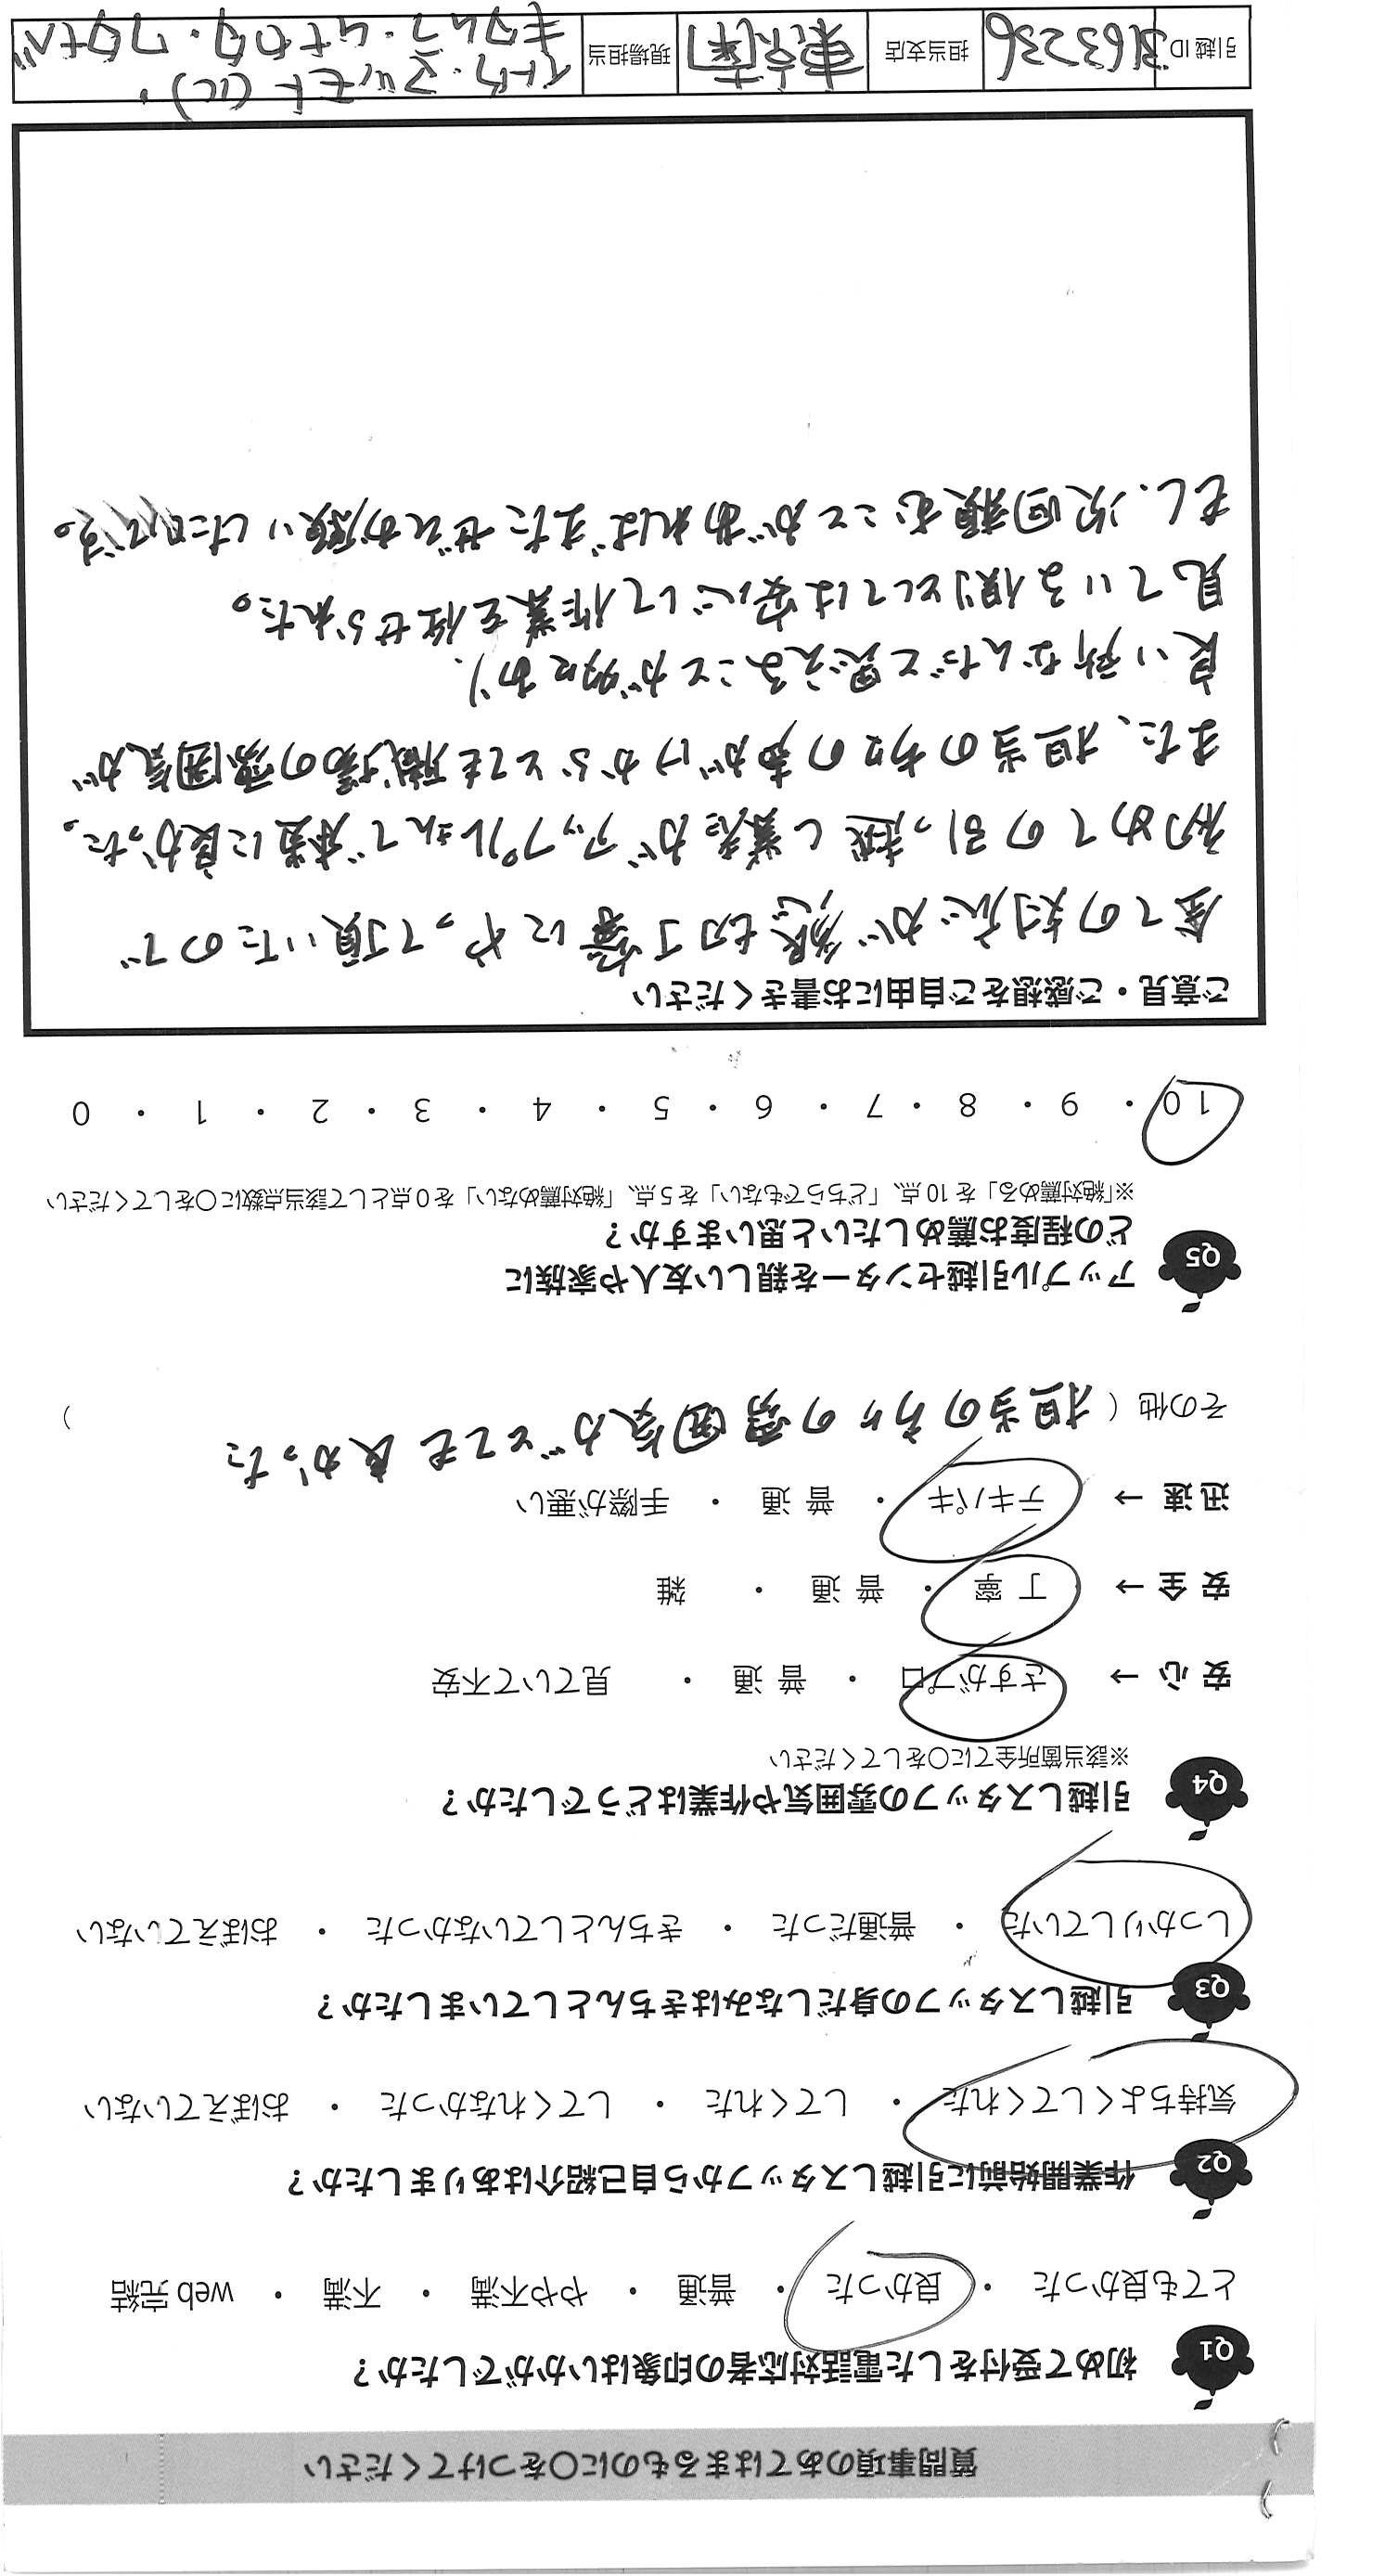 質問事項のあてはまるものに○をつけてください
Q1 初めて受付をした電話対応者の印象はいかがでしたか？
とても良かった ・ 良かった ・ 普通 ・ やや不満 ・ 不満 ・ web 完結
Q2 作業開始前に引越しスタッフから自己紹介はありましたか？
気持ちよくしてくれた ・ してくれた ・ してくれなかった ・ おぼえていない
Q3 引越しスタッフの身だしなみはきちんとしていましたか？
しっかりしていた ・ 普通だった ・ きちんとしていなかった ・ おぼえていない
Q4 引越しスタッフの雰囲気や作業はどうでしたか？
※該当箇所全てに○をしてください
安心 → さすがプロ ・ 普通 ・ 見ていて不安
安全 → 丁寧 ・ 普通 ・ 雑
迅速 → テキパキ ・ 普通 ・ 手際が悪い
その他（ 担当の方々の雰囲気がとても良かった ）
Q5 アップル引越センターを親しい友人や家族に
どの程度お薦めしたいと思いますか？
※「絶対薦める」を 10 点、「どちらでもない」を 5 点、「絶対薦めない」を 0 点として該当点数に○をしてください
10 ・ 9 ・ 8 ・ 7 ・ 6 ・ 5 ・ 4 ・ 3 ・ 2 ・ 1 ・ 0
ご意見・ご感想をご自由にお書きください
全ての対応が懇切丁寧にやって頂いたので
初めての引っ越し業者がアップルさんで本当に良かった。
また、担当の方々の声がけからとても職場の雰囲気が
良い所なんだと思えることが多々あり、
見ている側としては安心して作業を任せられた。
もし、次回頼むことがあればまたぜひお願いしたいです。
引越 ID 3163236 担当支店 東京(津) 現場担当 イトウ・マツモト (IC)・
キムラ・